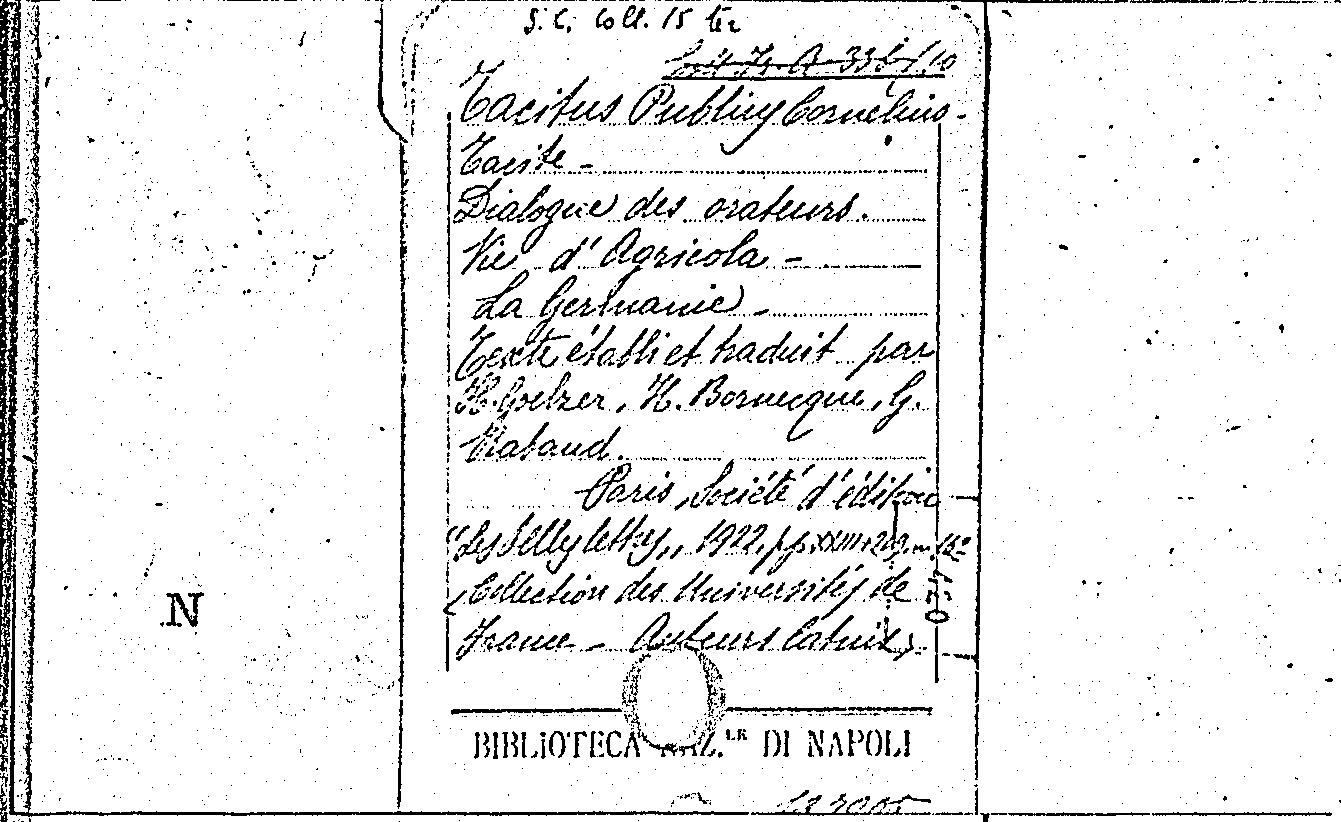 S.C. Coll. 15 ter
Tacitus Publius Cornelius -
Tacite -
Dialogue des orateurs.
Vie d' Agricola -
La Germanie -
Texte établi et traduit par
H. Goelzer, H. Bornecque, G.
Rabaud.
Paris, Société d'édition
"Les belles lettres,, 1922, pp. XXIII+ in 16º
(Collection des Universités de
France - Auteurs latins)
N
BIBLIOTECA DI NAPOLI